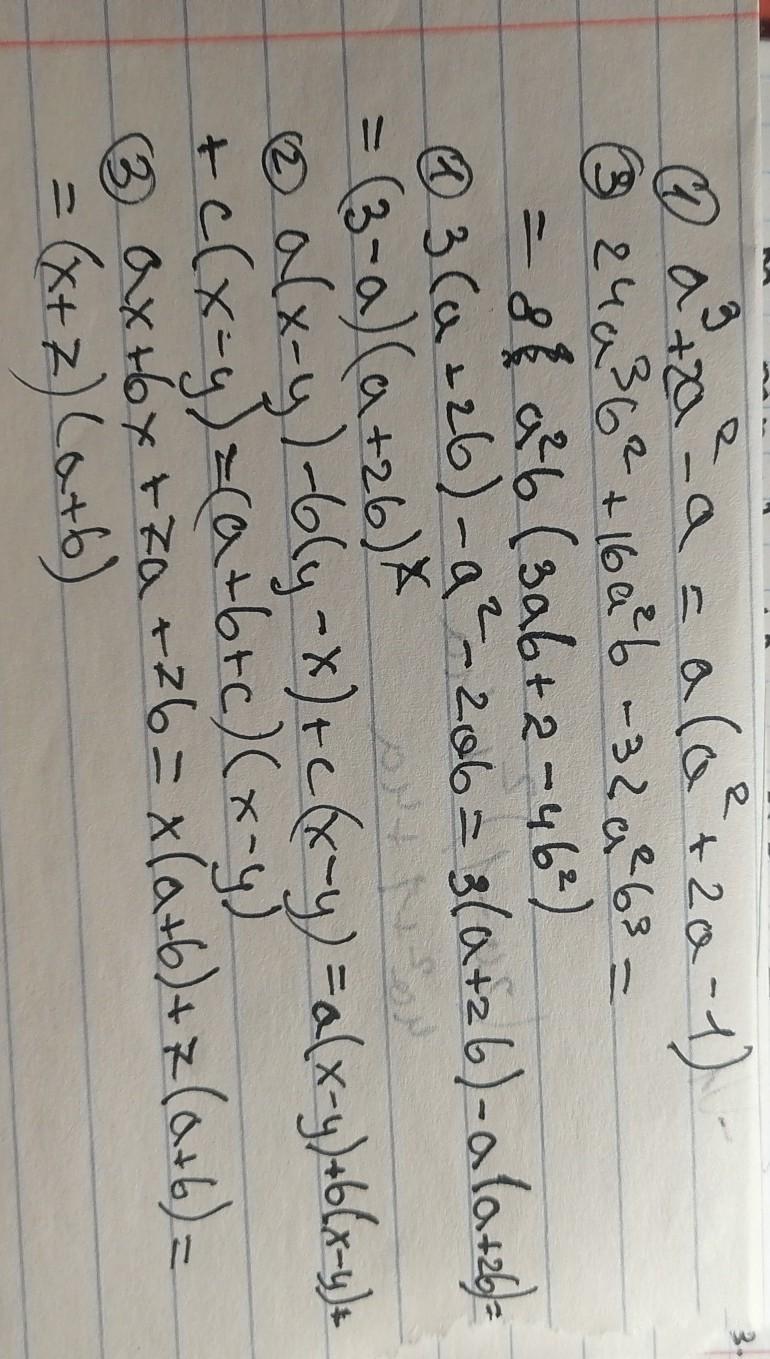 ① a³+2a²-a = a(a²+2a-1)
③ 24a³b²+16a²b-32a²b³=
= 8 a²b(3ab+2-4b²)
① 3(a+2b)-a²-2ab=3(a+2b)-a(a+2b)=
=(3-a)(a+2b)
② a(x-y)-b(y-x)+c(x-y)=a(x-y)+b(x-y)+
+c(x-y)=(a+b+c)(x-y)
③ ax+bx+za+zb=x(a+b)+z(a+b)=
=(x+z)(a+b)
3.